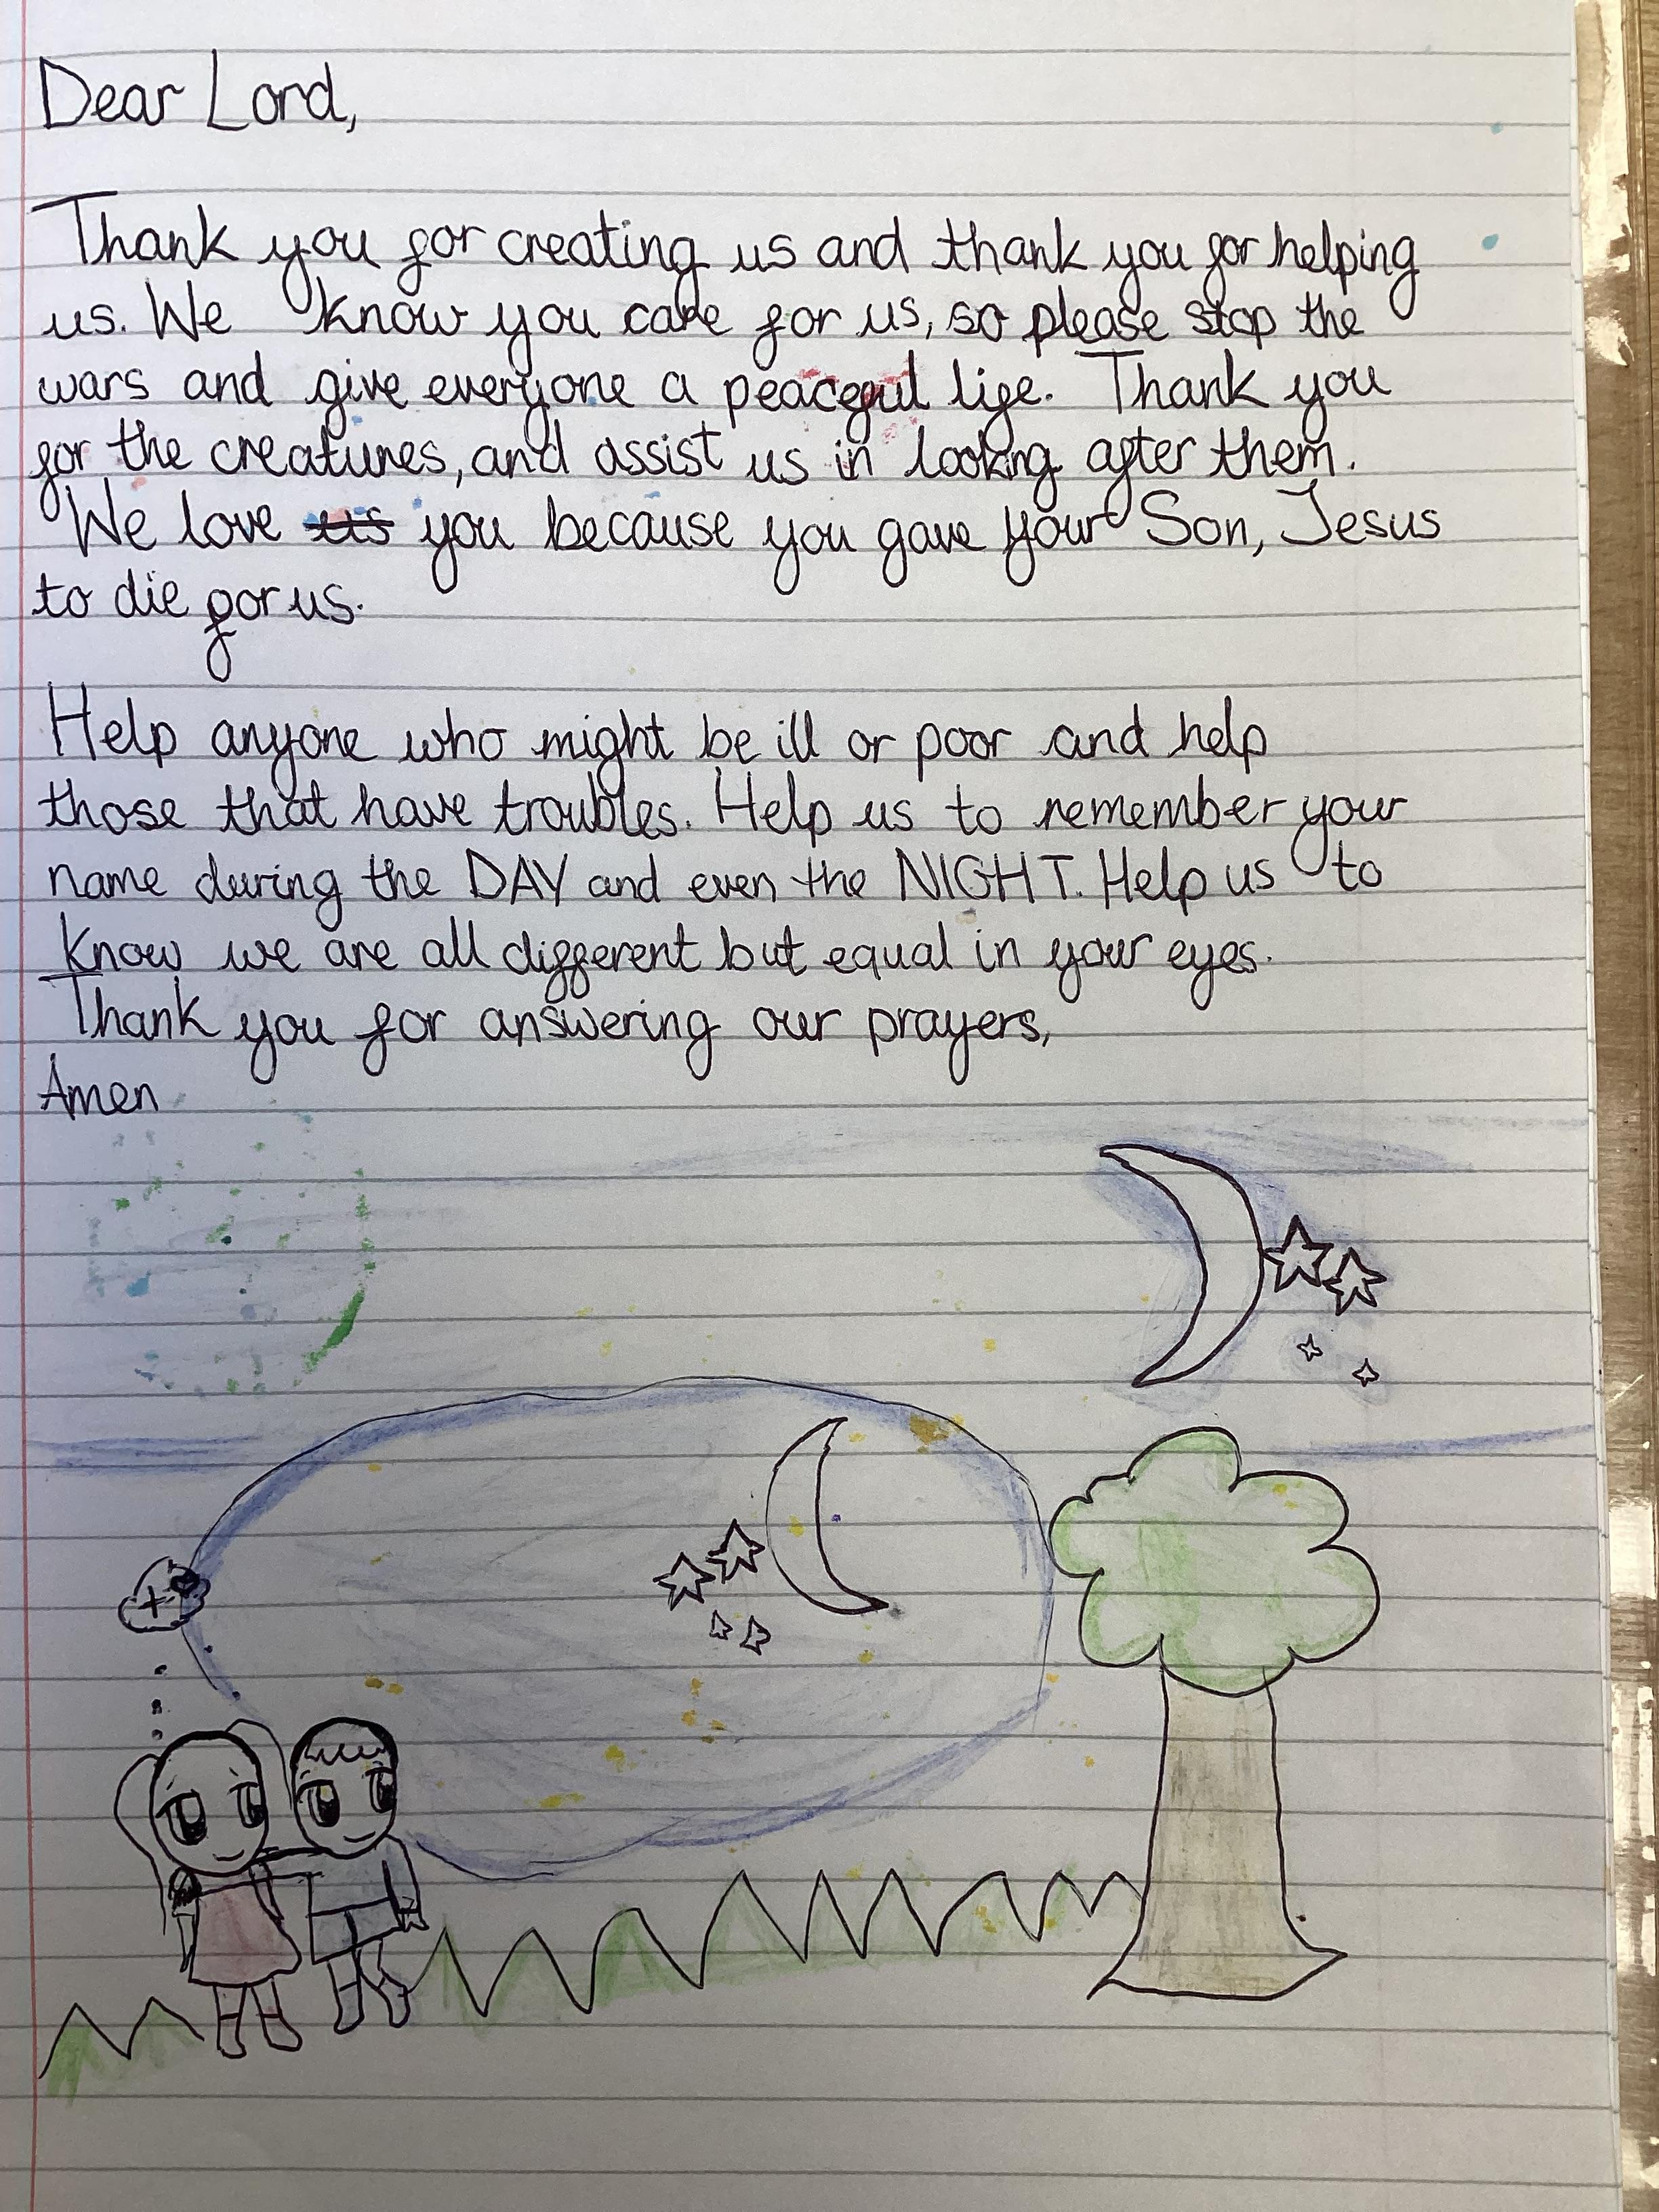 Dear Lord,
Thank you for creating us and thank you for helping
us. We know you care for us, so please stop the
wars and give everyone a peaceful life. Thank you
for the creatures, and assist us in looking after them.
We love us you because you gave your Son, Jesus
to die for us.
Help anyone who might be ill or poor and help
those that have troubles. Help us to remember your
name during the DAY and even the NIGHT. Help us to
know we are all different but equal in your eyes.
Thank you for answering our prayers,
Amen